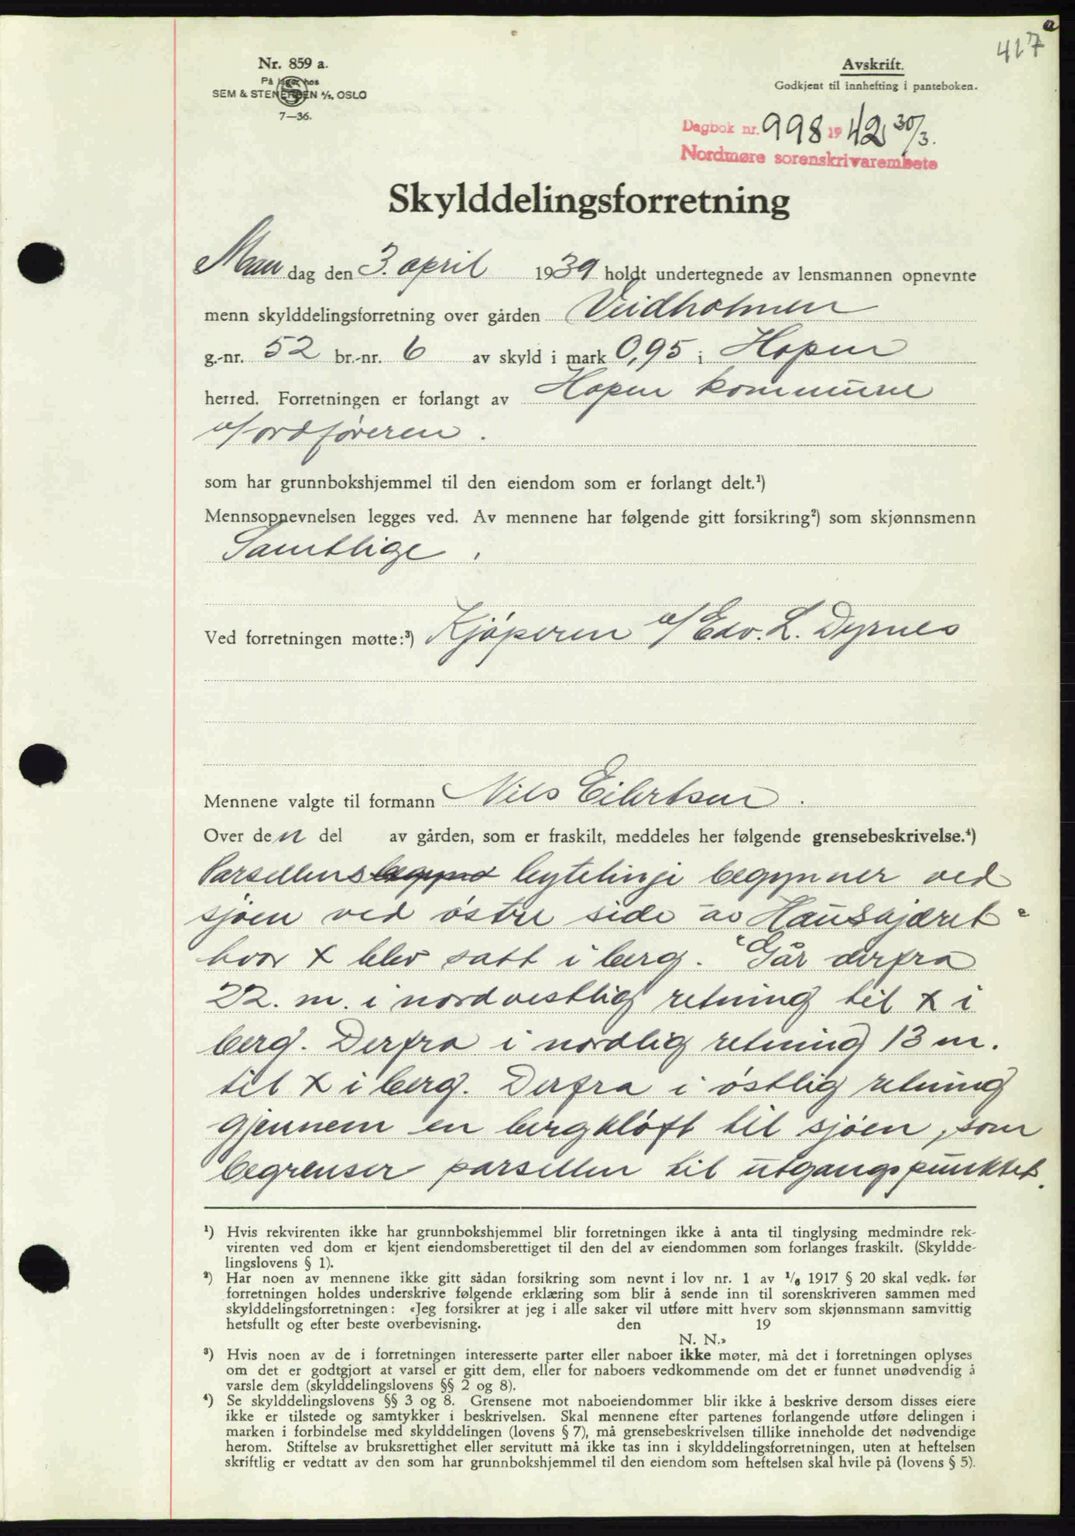 417
Nr. 859 a.
På lager hos
SEM & STENERSEN A/S, OSLO
7—36.
Avskrift.
Godkjent til innhefting i panteboken.
Dagbok nr. 998 1942 30/3.
Nordmøre sorenskrivarembete
Skylddelingsforretning
Man dag den 3. april 1939 holdt undertegnede av lensmannen opnevnte
menn skylddelingsforretning over gården Veidholmen
g.-nr. 52 br.-nr. 6 av skyld i mark 0,95 i Hopen
herred. Forretningen er forlangt av Hopen kommune
v/ordføreren.
som har grunnbokshjemmel til den eiendom som er forlangt delt.¹)
Mennsopnevnelsen legges ved. Av mennene har følgende gitt forsikring²) som skjønnsmenn
Samtlige.
Ved forretningen møtte:³) Kjøperen v/Edv. L. Dyrnes
Mennene valgte til formann Nils Eilertsen.
Over den del av gården, som er fraskilt, meddeles her følgende grensebeskrivelse.⁴)
Parsellens begynd bytelinje begynner ved
sjøen ved østre side av "Hauskjæret"
hvor x blev satt i berg. Går derfra
22. m. i nordvestlig retning til x i
berg. Derfra i nordlig retning 13 m.
til x i berg. Derfra i østlig retning
gjennem en bergkløft til sjøen, som
begrenser parsellen til utgangspunktet.
¹) Hvis rekvirenten ikke har grunnbokshjemmel blir forretningen ikke å anta til tinglysing medmindre rek-
virenten ved dom er kjent eiendomsberettiget til den del av eiendommen som forlanges fraskilt. (Skyldde-
lingslovens § 1).
²) Har noen av mennene ikke gitt sådan forsikring som nevnt i lov nr. 1 av 1/6 1917 § 20 skal vedk. før
forretningen holdes underskrive følgende erklæring som blir å sende inn til sorenskriveren sammen med
skylddelingsforretningen: «Jeg forsikrer at jeg i alle saker vil utføre mitt hverv som skjønnsmann samvittig
hetsfullt og efter beste overbevisning. den 19
N. N.»
³) Hvis noen av de i forretningen interesserte parter eller naboer ikke møter, må det i forretningen oplyses
om det er godtgjort at varsel er gitt dem, eller for naboers vedkommende om det er funnet unødvendig å
varsle dem (skylddelingslovens §§ 2 og 8).
⁴) Se skylddelingslovens §§ 3 og 8. Grensene mot naboeiendommer blir ikke å beskrive dersom disses eiere
ikke er tilstede og samtykker i beskrivelsen. Skal mennene efter partenes forlangende utføre delingen i
marken i forbindelse med skylddelingen (lovens § 7), må grensebeskrivelsen tillike inneholde det nødvendige
herom. Stiftelse av bruksrettighet eller servitutt må ikke tas inn i skylddelingsforretningen, uten at heftelsen
skriftlig er vedtatt av den som har grunnbokshjemmel til den eiendom som heftelsen skal hvile på (lovens § 5).